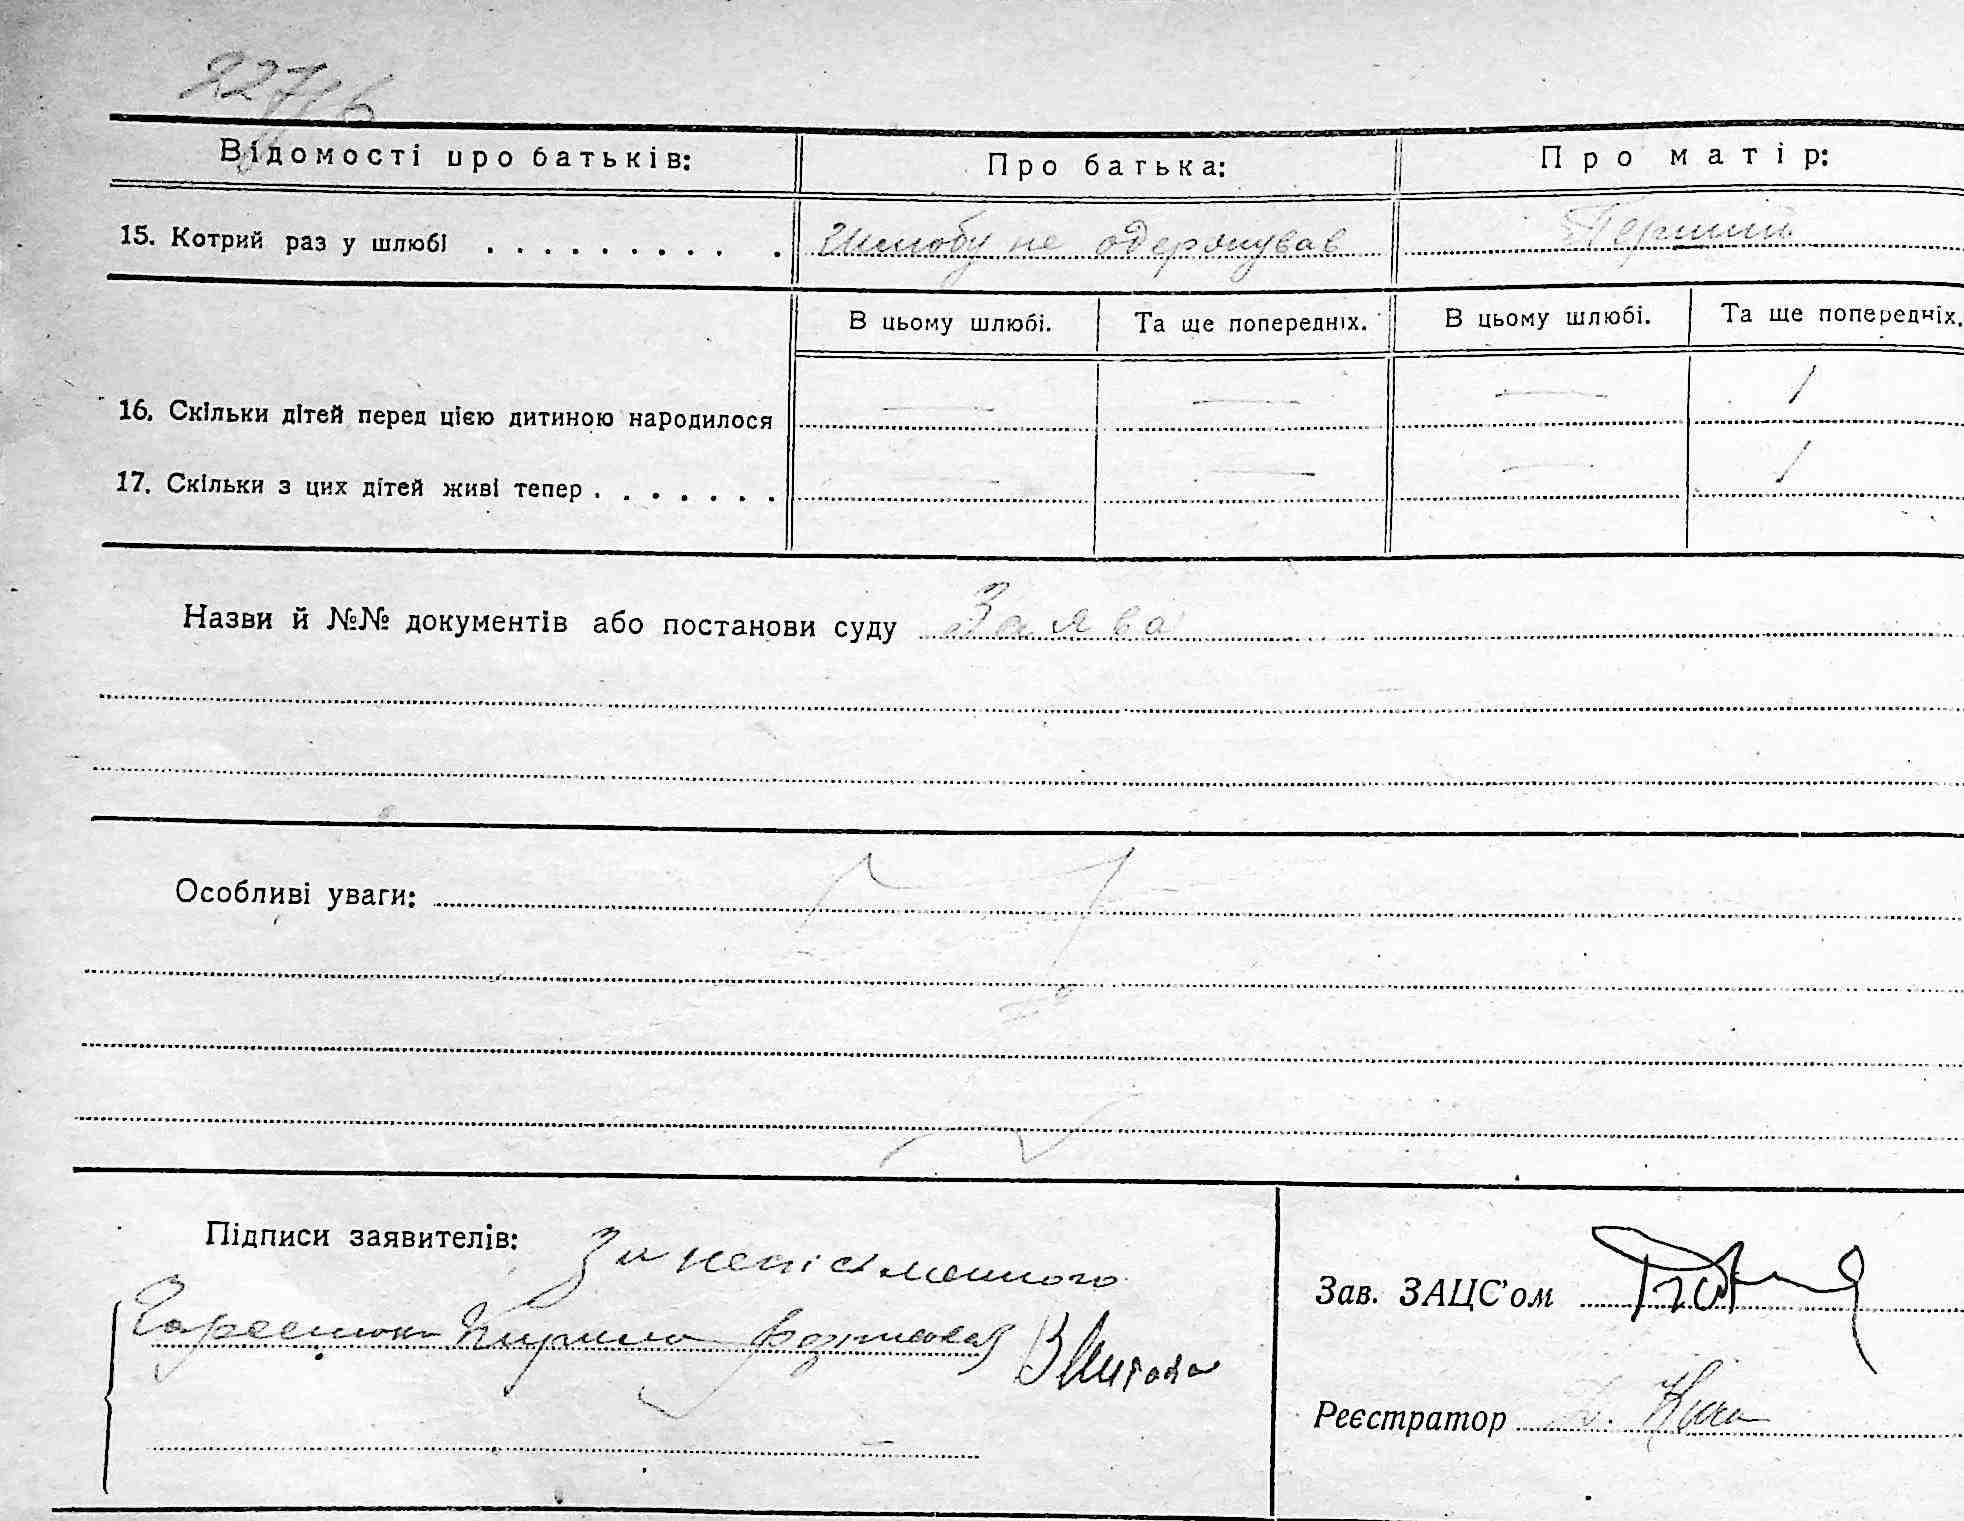 Відомості про батьків:
Про батька:
Про матір:
15. Котрий раз у шлюбі . . . . . . . . . .
Шлюбу не одержував
Перший
В цьому шлюбі.
Та ще попередніх.
В цьому шлюбі.
Та ще попередніх.
16. Скільки дітей перед цією дитиною народилося
— — — 1
17. Скільки з цих дітей живі тепер . . . . . . .
— — — 1
Назви й №№ документів або постанови суду Заява
Особливі уваги:
Підписи заявителів: За неписьменного
розписався
Зав. ЗАЦС'ом
Реєстратор